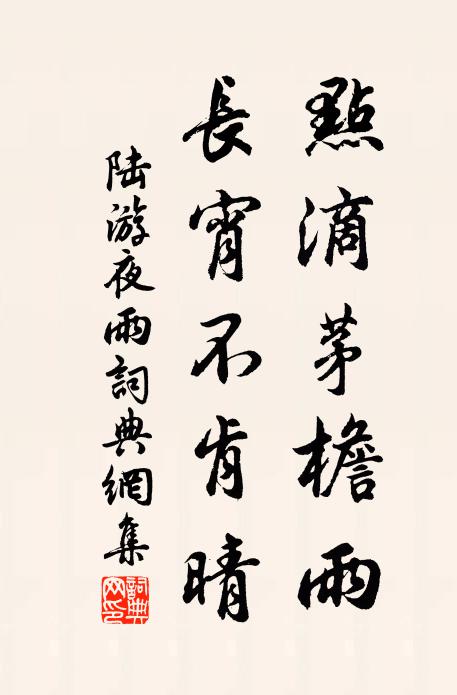 點滴茅檐雨
長宵不肯晴
陆游夜雨詞典網集
詞典網印